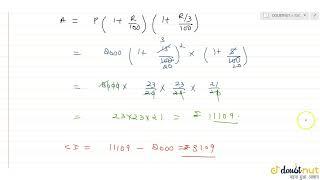 A = P ( 1 + R/100 ) ( 1 + R/3/100 )
= 8000 ( 1 + 15/100 )² × ( 1 + 5/100 )
3 20 20
= 8000 × 23/20 × 23/20 × 21/20
= 23×23×21 = ₹ 11109.
CI = 11109 - 8000 =
doubtnut